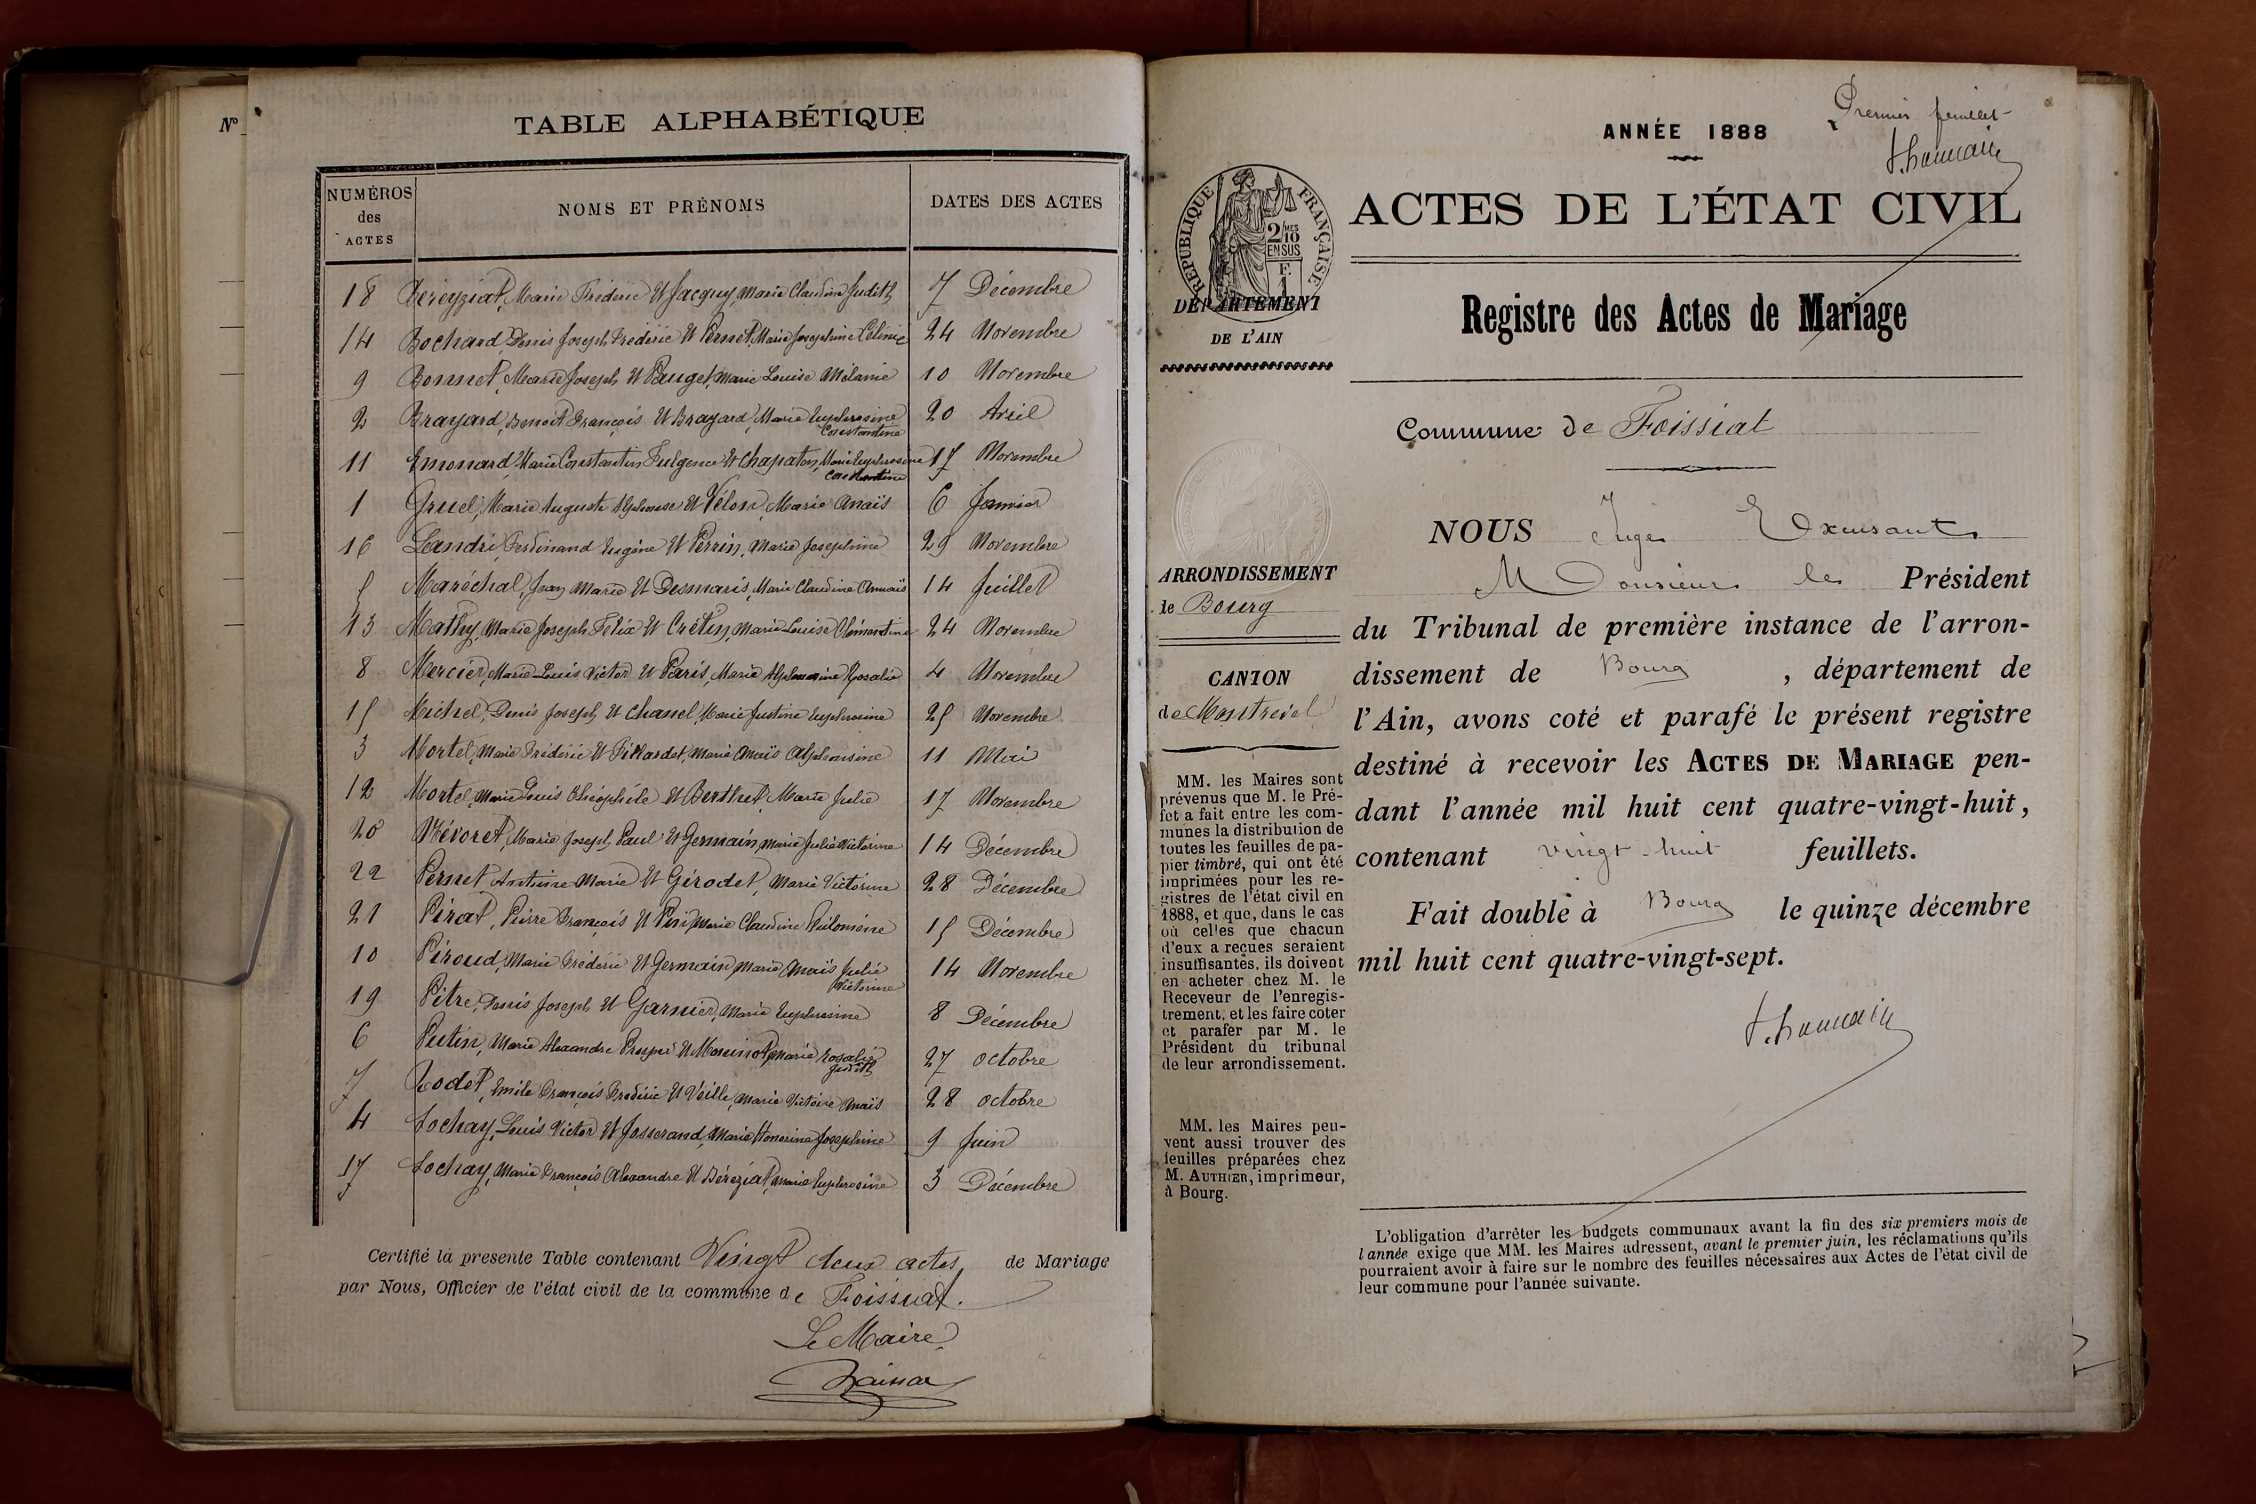 N°
TABLE ALPHABÉTIQUE
NUMÉROS des ACTES
NOMS ET PRÉNOMS
DATES DES ACTES
18 Béréyziat, Marie Fréderic Et Jacquy, Marie Claudine Judith 7 Décembre
14 Bochard, Denis Joseph Frédéric Et Pernet, Marie Josephine Célinie 24 Novembre
9 Bonnet, Marie Joseph Et Pauget, Marie Louise Mélanie 10 Novembre
2 Brayard, Benoit François Et Brayard, Marie Euphrosine Constantine 20 Avril
11 Emonard, Marie Constantin Fulgence Et Chapaton, Marie Euphrosine Constantine 17 Novembre
1 Gruel, Marie Auguste Alphonse Et Vélon, Marie Anaïs 6 Janvier
16 Landré, Ferdinand Eugène Et Perrin, Marie Josephine 29 Novembre
5 Maréchal, Jean Marie Et Desmaris, Marie Claudine 14 Juillet
13 Mathy, Marie Joseph Félix Et Crétin, Marie Louise Clémentine 24 Novembre
8 Mercier, Marie Louis Victor Et Paris, Marie Alphonsine Rosalie 4 Novembre
15 Michel, Denis Joseph Et Chanel, Marie Justine Euphrosine 25 Novembre
3 Mortel, Marie Frédéric Et Pillardet, Marie Anaïs Alphonsine 11 Mai
12 Mortel, Marie Louis Théophile Et Berthet, Marie Julie 17 Novembre
20 Névoret, Marie Joseph Paul Et Germain, Marie Julie Victorine 14 Décembre
22 Pernet Antoine Marie Et Girodet, Marie Victorine 28 Décembre
21 Pirat, Pierre François Et Marie Claudine Philomène 15 Décembre
10 Piroud, Marie Fréderic Et Germain, Marie Anaïs Julie Victorine 14 Novembre
19 Pitre, Denis Joseph Et Garnier, Marie Euphrosine 8 Décembre
6 Putin, Marie Alexandre Prosper Et Marie Rosalie Judith 27 octobre
7 Rodet, Emile François Frédéric Et Veille, Marie Victoire Anaïs 28 octobre
4 Sochay, Louis Victor Et Josserand, Marie Honorine Josephine 9 Juin
17 Sochay, Marie François Alexandre Et Béréziat, Marie Euphrosine 3 Décembre
Certifié la presente Table contenant Vingt deux actes, de Mariage
par Nous, Officier de l'état civil de la commune de Foissiat.
Le Maire,
Premier feuillet
ANNÉE 1888
RÉPUBLIQUE FRANÇAISE
2/10 MES EN SUS
F. 1
ACTES DE L'ÉTAT CIVIL
DÉPARTEMENT
DE L'AIN
Registre des Actes de Mariage
Commune de Foissiat
ARRONDISSEMENT
de Bourg
CANTON
de Montrevel
MM. les Maires sont
prévenus que M. le Pré-
fet a fait entre les com-
munes la distribution de
toutes les feuilles de pa-
pier timbré, qui ont été
imprimées pour les re-
gistres de l'état civil en
1888, et que, dans le cas
où celles que chacun
d'eux a reçues seraient
insuffisantes, ils doivent
en acheter chez M. le
Receveur de l'enregis-
trement, et les faire coter
et parafer par M. le
Président du tribunal
de leur arrondissement.
MM. les Maires peu-
vent aussi trouver des
feuilles préparées chez
M. AUTHIER, imprimeur,
à Bourg.
NOUS Juge Excusant
Monsieur le Président
du Tribunal de première instance de l'arron-
dissement de Bourg, département de
l'Ain, avons coté et parafé le présent registre
destiné à recevoir les ACTES DE MARIAGE pen-
dant l'année mil huit cent quatre-vingt-huit,
contenant vingt-huit feuillets.
Fait double à Bourg le quinze décembre
mil huit cent quatre-vingt-sept.
L'obligation d'arrêter les budgets communaux avant la fin des six premiers mois de
l'année exige que MM. les Maires adressent, avant le premier juin, les réclamations qu'ils
pourraient avoir à faire sur le nombre des feuilles nécessaires aux Actes de l'état civil de
leur commune pour l'année suivante.